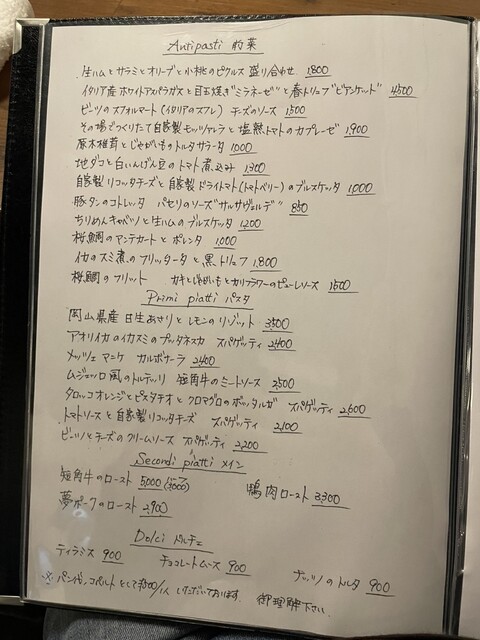 Antipasti 前菜
生ハムとサラミとオリーブと小桃のピクルス 盛り合わせ 1,800
イタリア産ホワイトアスパラガスと目玉焼き"ミラネーゼ"と春トリュフ"ビアンケット" 4500
ビーツのスフォルマート(イタリアのスフレ) チーズのソース 1500
その場でつくりたて自家製モッツァレラと塩熟トマトのカプレーゼ 1,900
原木椎茸とじゃがいものトルタサラータ 1,000
地ダコと白いんげん豆のトマト煮込み 1,300
自家製リコッタチーズと自家製ドライトマト(トマトベリー)のブルスケッタ 1,000
豚タンのコトレッタ パセリのソース"サルサヴェルデ" 850
ちりめんキャベツと生ハムのブルスケッタ 1,200
桜鯛のアンテカートとポレンタ 1,000
イカのスミ煮のフリッタータと黒トリュフ 1,800
桜鯛のフリット カキとじゃがいもとカリフラワーのピューレソース 1500
Primi piatti パスタ
岡山県産日生あさりとレモンのリゾット 3,500
アオリイカのイカスミのプッタネスカ スパゲッティ 2,400
メッツェマニケ カルボナーラ 2,400
ムジェッロ風のトルテッリ 短角牛のミートソース 2,500
タロッコオレンジとピスタチオとクロマグロのボッタルガ スパゲッティ 2,600
トマトソースと自家製リコッタチーズ スパゲッティ 2,100
ビーツとチーズのクリームソース スパゲッティ 2,200
Secondi piatti メイン
短角牛のロースト 5,000 鴨肉ロースト 3,300
夢ポークのロースト 2,900
Dolci ドルチェ
ティラミス 900 チョコレートムース 900 ナッツのトルタ 900
※パン代、コペルトとして¥500/1人 いただいております。御理解下さい。